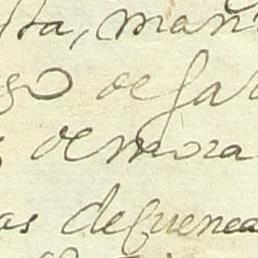 sta, man
go de Ga
s de mora
as de Guenca